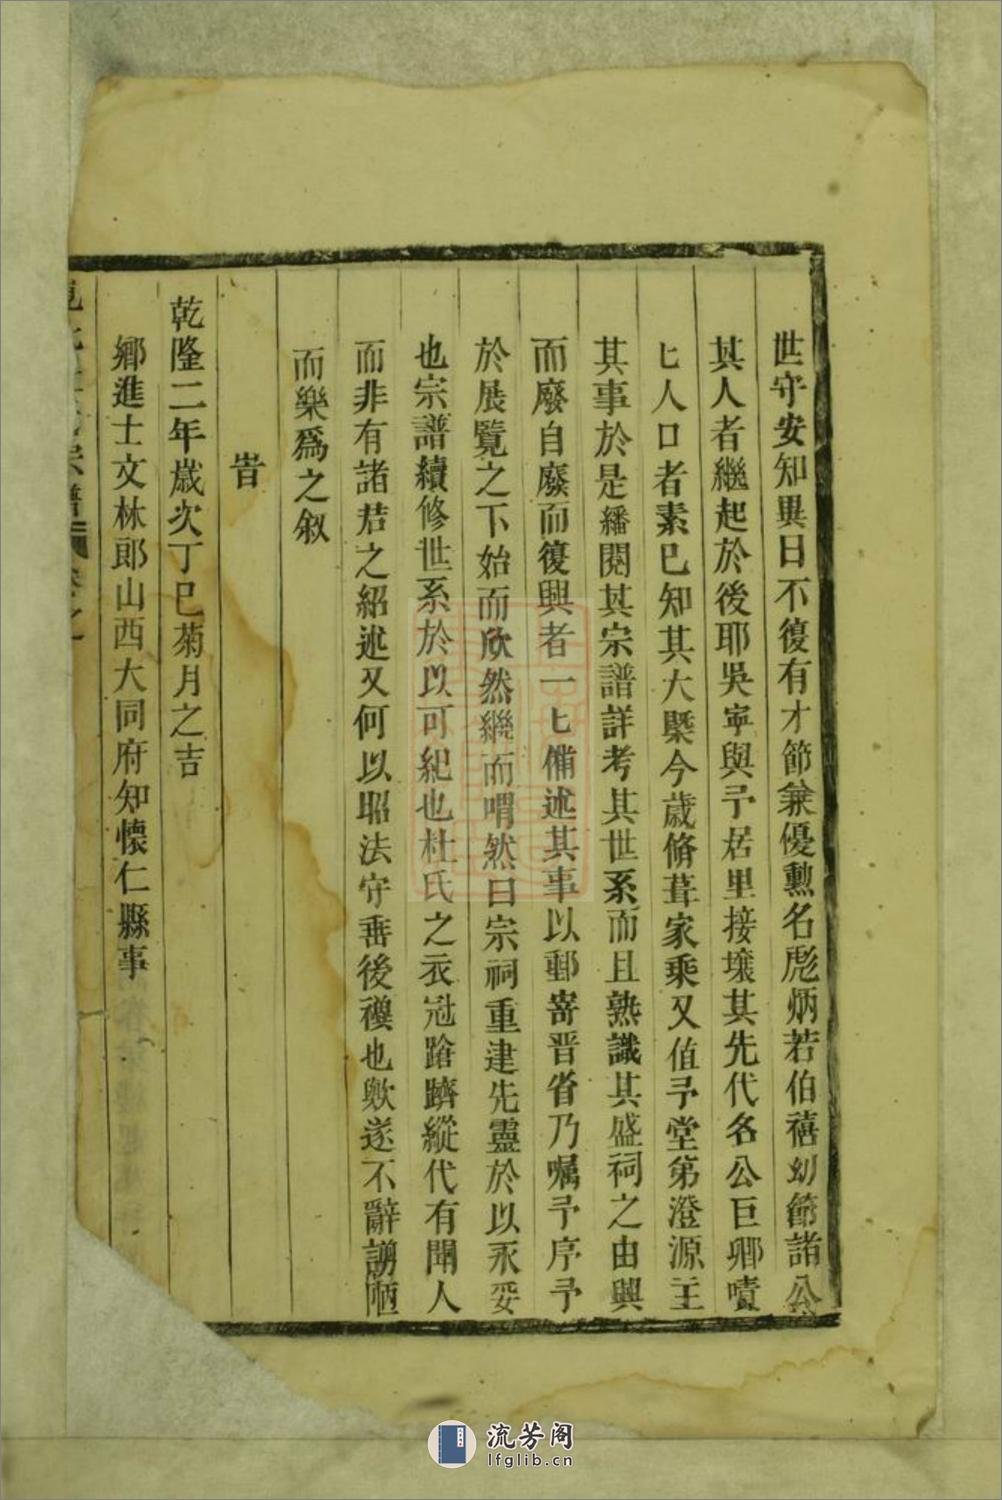 世守安知異日不復有才節兼優勲名彪炳若伯禧幼節諸公
其人者繼起於後耶吳寧與予居里接壤其先代名公巨卿嘖
匕人口者素已知其大槩今歲脩葺家乘又值予堂第澄源主
其事於是繙閱其宗譜詳考其世系而且熟識其盛祠之由興
而廢自廢而復興者一匕備述其事以郵寄晋省乃嘱予序予
於展覽之下始而欣然繼而喟然曰宗祠重建先靈於以永妥
也宗譜續修世系於以可紀也杜氏之衣冠蹌躋縱代有聞人
而非有諸君之紹述又何以昭法守垂後禩也歟遂不辭譾陋
而樂爲之叙
旹
乾隆二年歲次丁巳菊月之吉
鄉進士文林郎山西大同府知懷仁縣事
宗譜
流芳阁
lfglib.cn